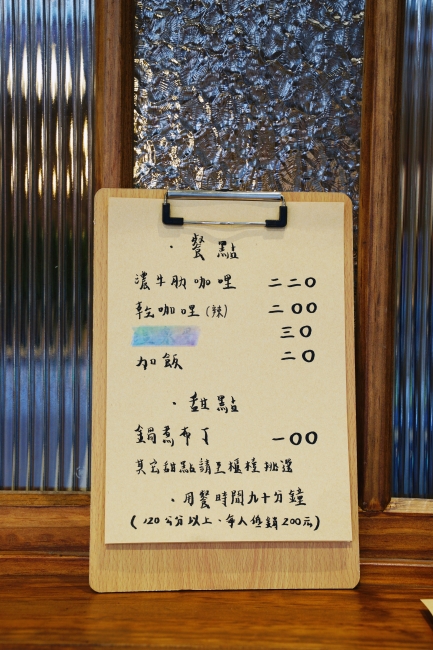 ·餐點
濃牛肋咖哩 二二〇
乾咖哩(辣) 二〇〇
三〇
加飯 二〇
·甜點
鍋煮布丁 一〇〇
其它甜點請至櫃檯挑選
·用餐時間九十分鐘
(120公分以上、每人低銷200元)